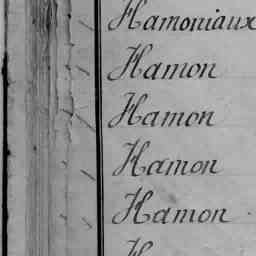 Hamoniaux
Hamon
Hamon
Hamon
Hamon